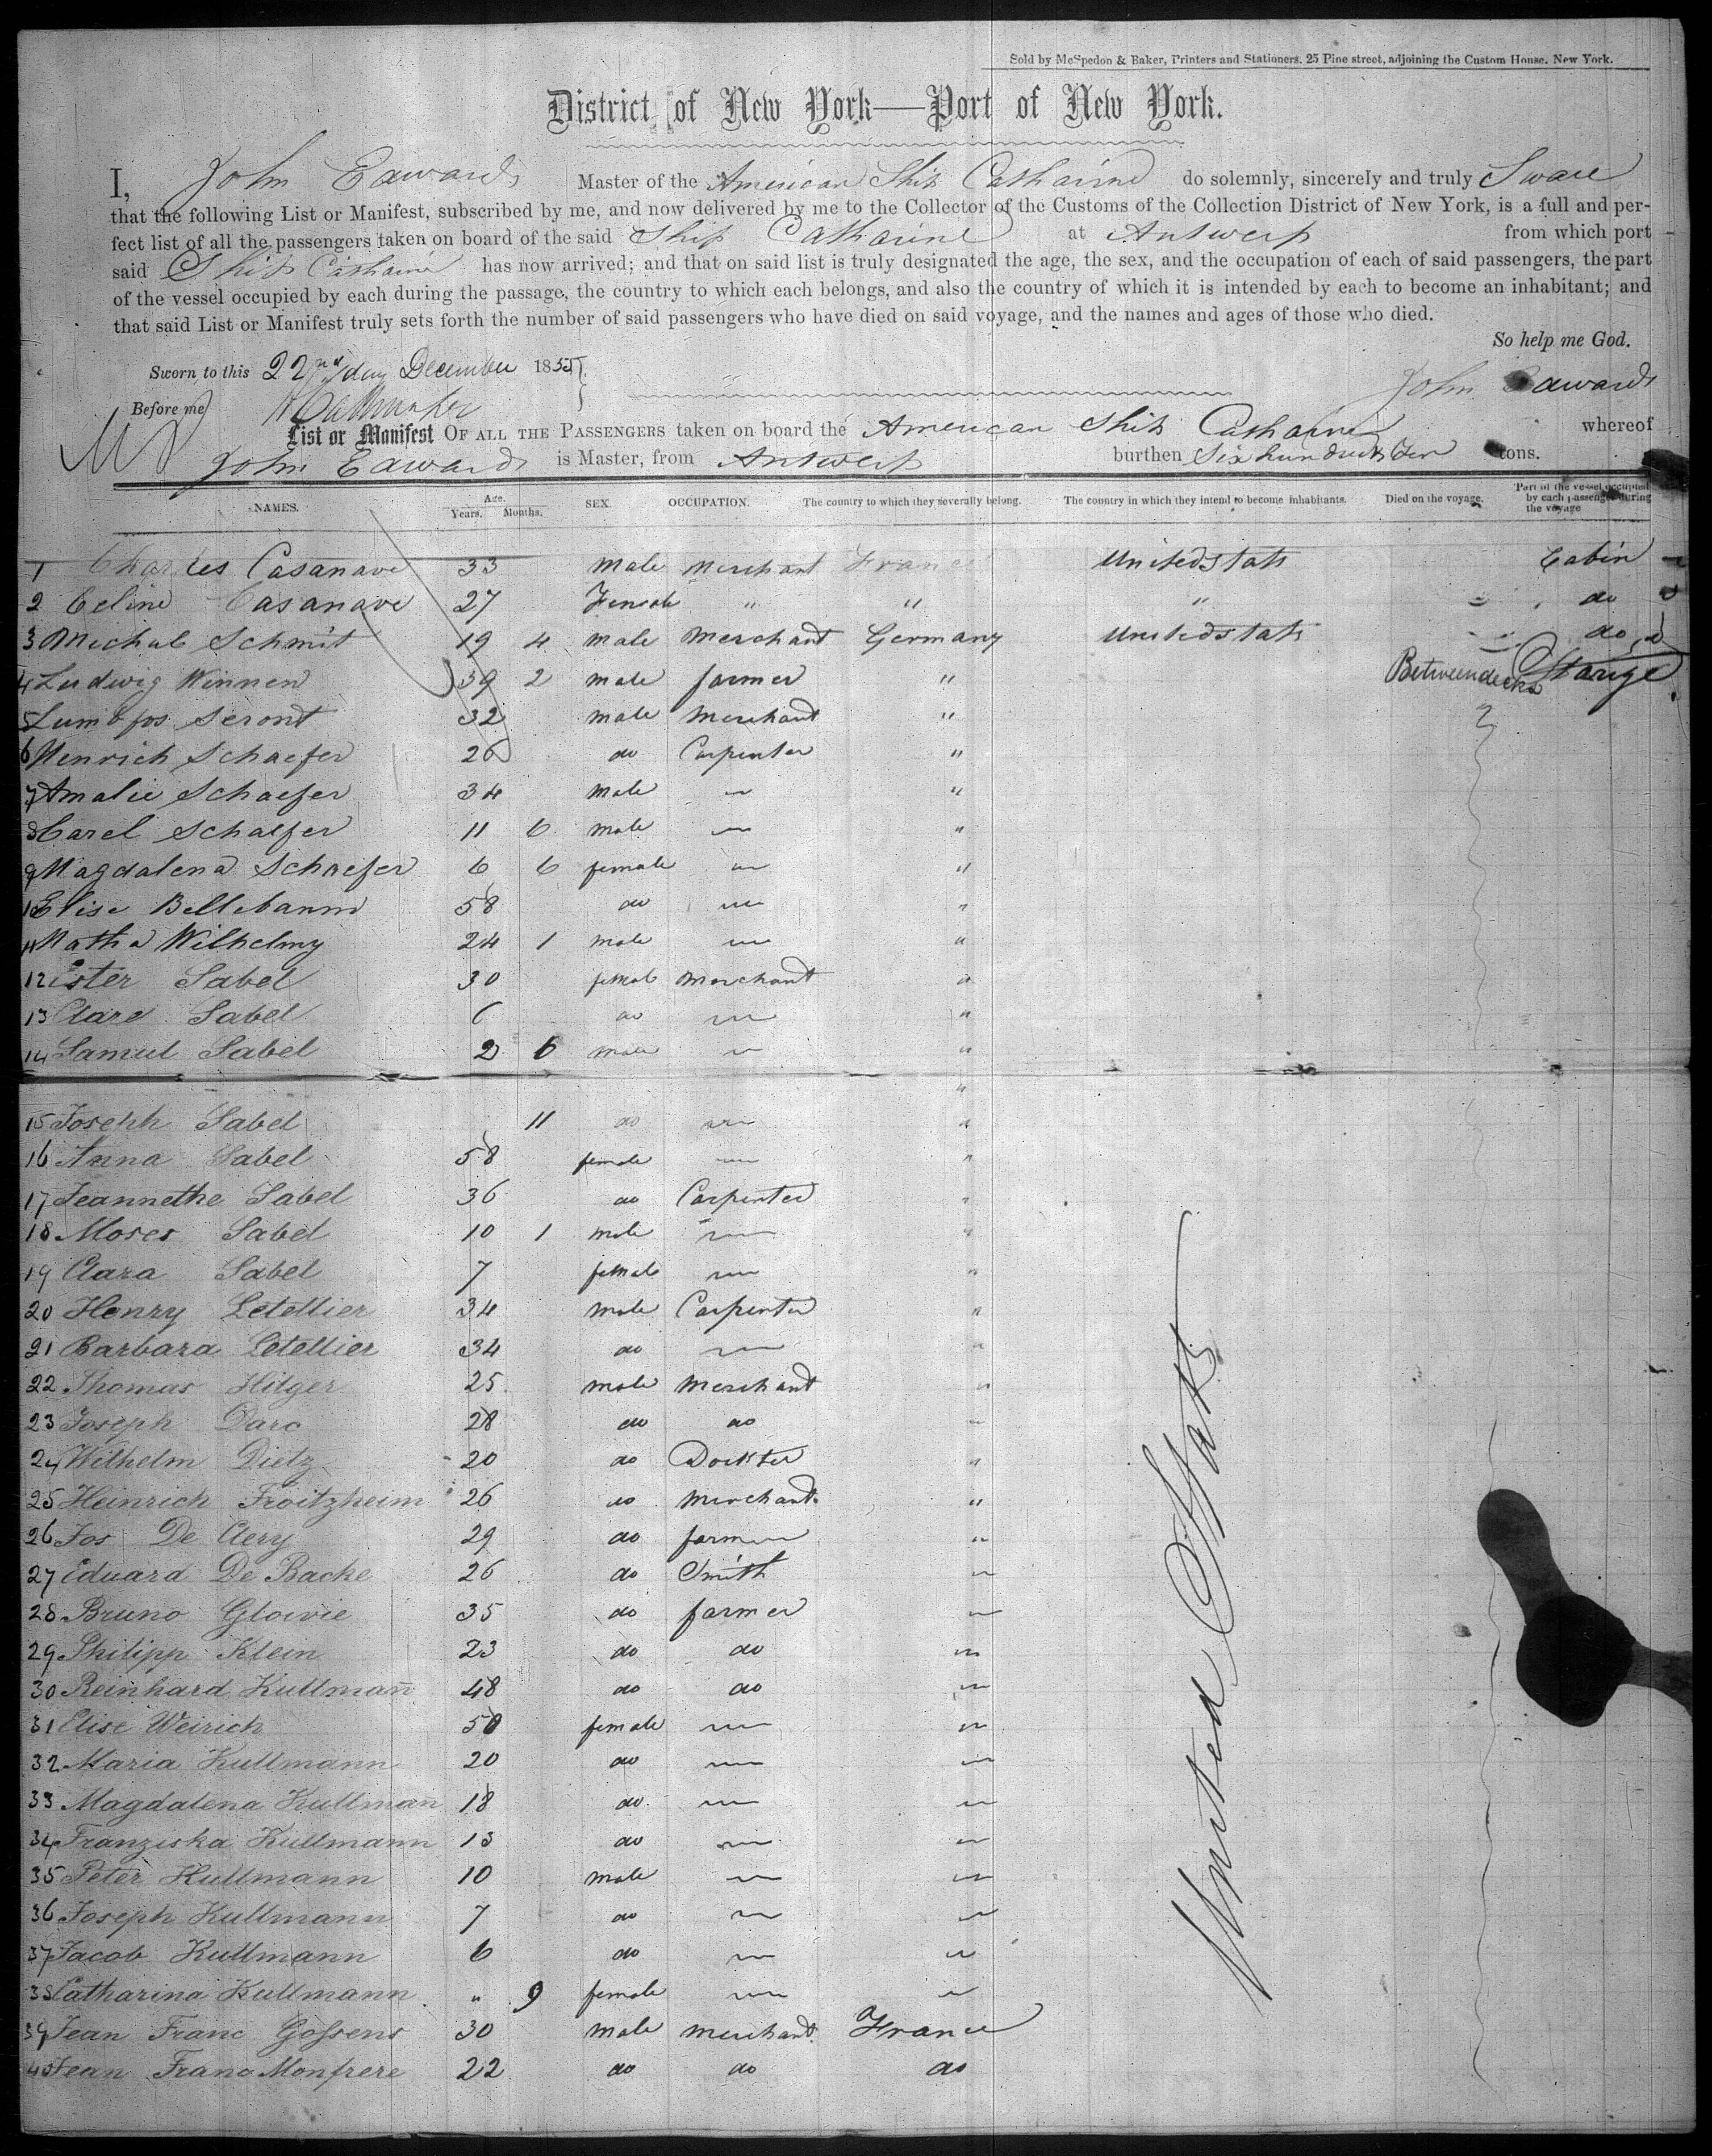 Sold by McSpedon & Baker, Printers and Stationers. 25 Pine street, adjoining the Custom House. New York.
District of New York—Port of New York.
I, John Edwards Master of the American Ship Catharine do solemnly, sincerely and truly Sware
that the following List or Manifest, subscribed by me, and now delivered by me to the Collector of the Customs of the Collection District of New York, is a full and per-
fect list of all the passengers taken on board of the said Ship Catharine at Antwerp from which port
said Ship Catharine has now arrived; and that on said list is truly designated the age, the sex, and the occupation of each of said passengers, the part
of the vessel occupied by each during the passage, the country to which each belongs, and also the country of which it is intended by each to become an inhabitant; and
that said List or Manifest truly sets forth the number of said passengers who have died on said voyage, and the names and ages of those who died.
So help me God.
Sworn to this 22nd day December 1855
John Edwards
Before me
List or Manifest OF ALL THE PASSENGERS taken on board the American Ship Catharine whereof
John Edwards is Master, from Antwerp burthen Six hundred Ten tons.
NAMES. Age. Years. Months. SEX. OCCUPATION. The country to which they severally belong. The country in which they intend to become inhabitants. Died on the voyage. Part of the vessel occupied by each passenger during the voyage
1 Charles Casanave 33 male Merchant France United stats Cabin
2 Celine Casanave 27 Female " " " do
3 Michal Schmit 19 4 male Merchant Germany United stats do
4 Ludwig Winnen 39 2 male farmer " Betweendecks Starige
5 Seront 32 male Merchant "
6 Henrich Schaefer 26 do Carpenter "
7 Amalie Schaefer 34 male "
8 Carel Schaefer 11 6 male "
9 Magdalena Schaefer 6 6 female "
10 Elise Bellebaum 58 do "
11 Matha Wilhelmy 24 1 male "
12 Ester Sabel 30 female Merchant "
13 Clare Sabel 6 do "
14 Samuel Sabel 2 6 male "
"
15 Joseph Sabel 11 do "
16 Anna Sabel 58 female "
17 Jeannethe Sabel 36 do Carpenter "
18 Moses Sabel 10 1 male "
19 Clara Sabel 7 female "
20 Henry Letellier 34 male Carpenter "
21 Barbara Letellier 34 do "
22 Thomas Hilger 25 male Merchant "
23 Joseph Darc 28 do do "
24 Wilhelm Dietz 20 do Dockter "
25 Heinrich Froitzheim 26 do Merchant "
26 Jos De Clery 29 do farmer "
27 Eduard De Backe 26 do Smith "
28 Bruno Gloivie 35 do farmer "
29 Philipp Klein 23 do do "
30 Reinhard Kullmañ 48 do do "
31 Elise Weirich 50 female "
32 Maria Kullmann 20 do "
33 Magdalena Kullmañ 18 do "
34 Franziska Kullmann 13 do "
35 Peter Kullmann 10 male "
36 Joseph Kullmann 7 do "
37 Jacob Kullmann 6 do "
38 Catharina Kullmann " 9 female "
39 Jean Franc Gossens 30 male merchant France
40 Jean Franc Monfrere 22 do do do
United Stats